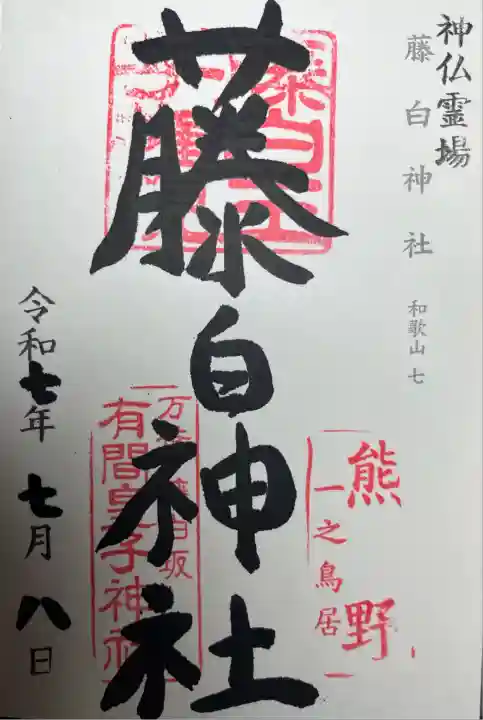 神仏霊場
藤白神社 和歌山 七
藤白神社
熊野
一之鳥居
有間皇子神社
令和七年 七月 八日